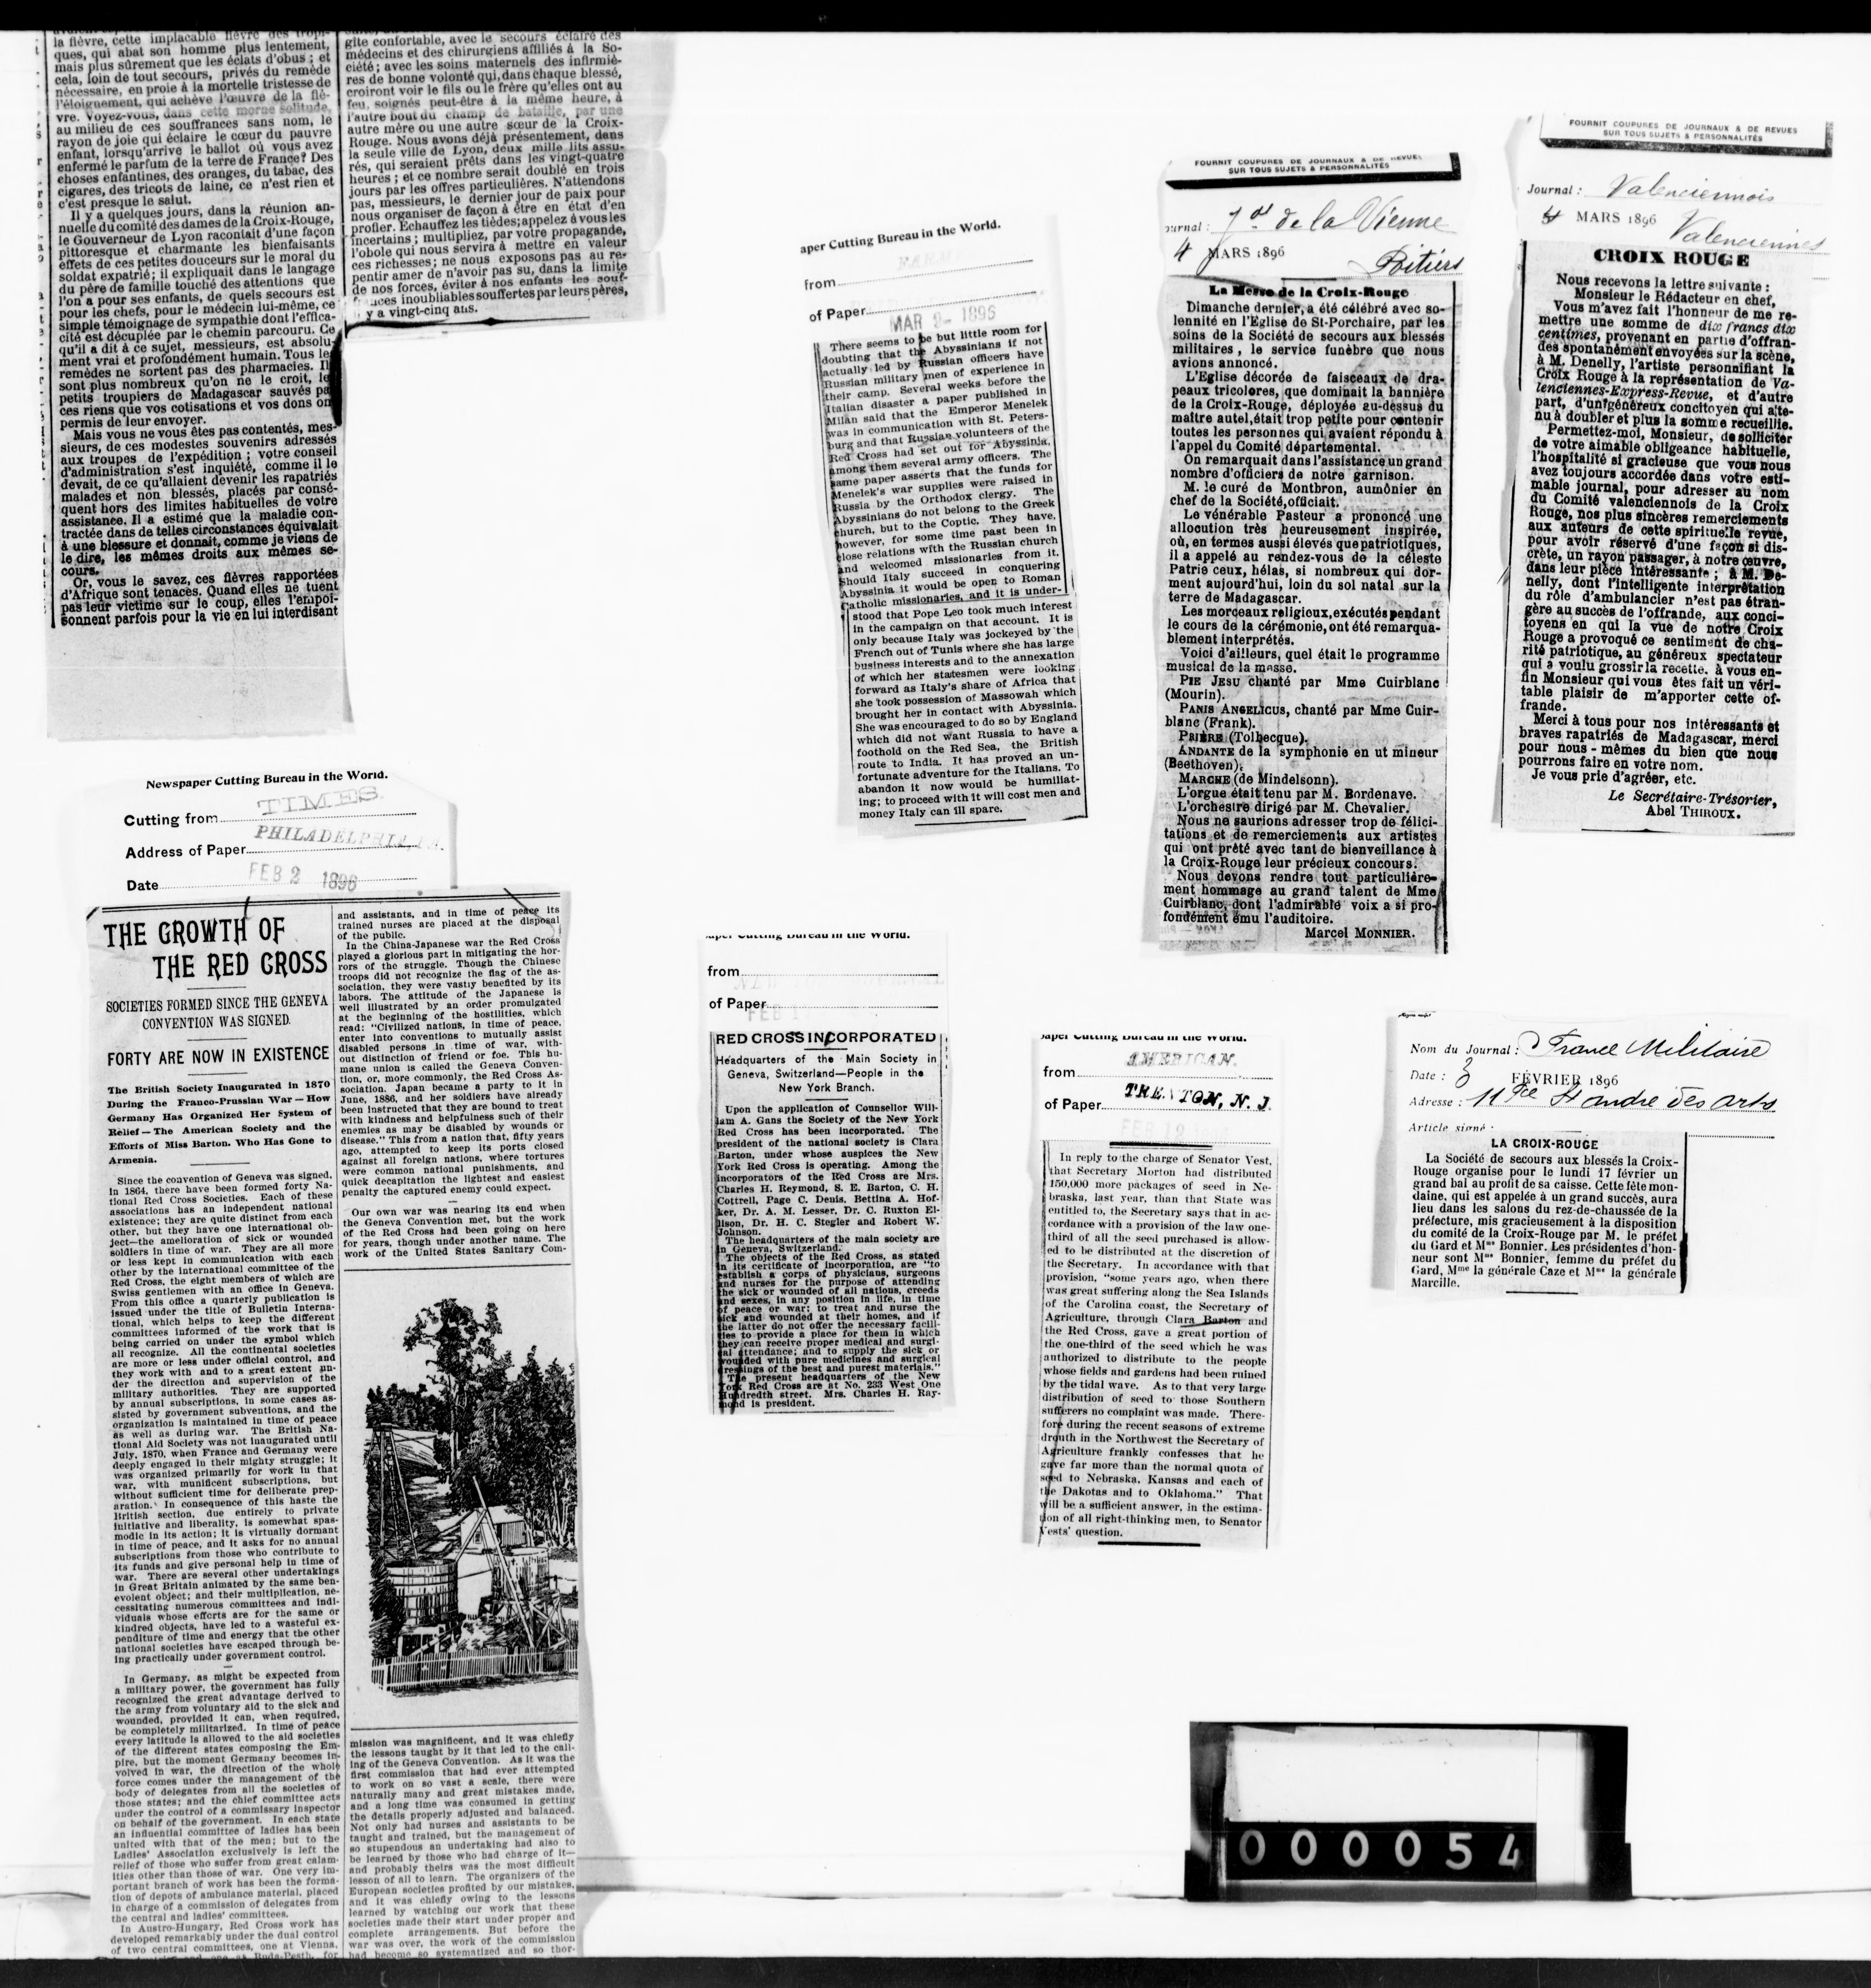 la fièvre, cette implacable fièvre des tropi-
ques, qui abat son homme plus lentement,
mais plus sûrement que les éclats d'obus ; et
cela, loin de tout secours, privés du remède
nécessaire, en proie à la mortelle tristesse de
l'éloignement, qui achève l'œuvre de la fiè-
vre. Voyez-vous, dans cette morne solitude,
au milieu de ces souffrances sans nom, le
rayon de joie qui éclaire le cœur du pauvre
enfant, lorsqu'arrive le ballot où vous avez
enfermé le parfum de la terre de France? Des
choses enfantines, des oranges, du tabac, des
cigares, des tricots de laine, ce n'est rien et
c'est presque le salut.
Il y a quelques jours, dans la réunion an-
nuelle du comité des dames de la Croix-Rouge,
le Gouverneur de Lyon racontait d'une façon
pittoresque et charmante les bienfaisants
effets de ces petites douceurs sur le moral du
soldat expatrié; il expliquait dans le langage
du père de famille touché des attentions que
l'on a pour ses enfants, de quels secours est
pour les chefs, pour le médecin lui-même, ce
simple témoignage de sympathie dont l'effica-
cité est décuplée par le chemin parcouru. Ce
qu'il a dit à ce sujet, messieurs, est absolu-
ment vrai et profondément humain. Tous les
remèdes ne sortent pas des pharmacies. Il
sont plus nombreux qu'on ne le croit, le
petits troupiers de Madagascar sauvés pa
ces riens que vos cotisations et vos dons on
permis de leur envoyer.
Mais vous ne vous êtes pas contentés, mes-
sieurs, de ces modestes souvenirs adressés
aux troupes de l'expédition ; votre conseil
d'administration s'est inquiété, comme il le
devait, de ce qu'allaient devenir les rapatriés
malades et non blessés, placés par consé-
quent hors des limites habituelles de votre
assistance. Il a estimé que la maladie con-
tractée dans de telles circonstances équivalait
à une blessure et donnait, comme je viens de
le dire, les mêmes droits aux mêmes se-
cours.
Or, vous le savez, ces fièvres rapportées
d'Afrique sont tenaces. Quand elles ne tuent
pas leur victime sur le coup, elles l'empoi-
sonnent parfois pour la vie en lui interdisant
gîte confortable, avec le secours éclairé des
médecins et des chirurgiens affiliés à la So-
ciété; avec les soins maternels des infirmiè-
res de bonne volonté qui, dans chaque blessé,
croiront voir le fils ou le frère qu'elles ont au
feu, soignés peut-être à la même heure, à
l'autre bout du champ de bataille, par une
autre mère ou une autre sœur de la Croix-
Rouge. Nous avons déjà présentement, dans
la seule ville de Lyon, deux mille lits assu-
rés, qui seraient prêts dans les vingt-quatre
heures ; et ce nombre serait doublé en trois
jours par les offres particulières. N'attendons
pas, messieurs, le dernier jour de paix pour
nous organiser de façon à être en état d'en
profiter. Echauffez les tièdes; appelez à vous les
incertains ; multipliez, par votre propagande,
l'obole qui nous servira à mettre en valeur
ces richesses; ne nous exposons pas au re-
pentir amer de n'avoir pas su, dans la limite
de nos forces, éviter à nos enfants les souf-
frances inoubliables souffertes par leurs pères,
y a vingt-cinq ans.
Newspaper Cutting Bureau in the World.
Cutting from TIMES.
Address of Paper PHILADELPHIA, PA.
Date FEB 2 1896
THE GROWTH OF
THE RED CROSS
SOCIETIES FORMED SINCE THE GENEVA
CONVENTION WAS SIGNED.
FORTY ARE NOW IN EXISTENCE
The British Society Inaugurated in 1870
During the Franco-Prussian War—How
Germany Has Organized Her System of
Relief—The American Society and the
Efforts of Miss Barton, Who Has Gone to
Armenia.
Since the convention of Geneva was signed,
in 1864, there have been formed forty Na-
tional Red Cross Societies. Each of these
associations has an independent national
existence; they are quite distinct from each
other, but they have one international ob-
ject—the amelioration of sick or wounded
soldiers in time of war. They are all more
or less kept in communication with each
other by the international committee of the
Red Cross, the eight members of which are
Swiss gentlemen with an office in Geneva.
From this office a quarterly publication is
issued under the title of Bulletin Interna-
tional, which helps to keep the different
committees informed of the work that is
being carried on under the symbol which
all recognize. All the continental societies
are more or less under official control, and
they work with and to a great extent un-
der the direction and supervision of the
military authorities. They are supported
by annual subscriptions, in some cases as-
sisted by government subventions, and the
organization is maintained in time of peace
as well as during war. The British Na-
tional Aid Society was not inaugurated until
July, 1870, when France and Germany were
deeply engaged in their mighty struggle; it
was organized primarily for work in that
war, with munificent subscriptions, but
without sufficient time for deliberate prep-
aration. In consequence of this haste the
British section, due entirely to private
initiative and liberality, is somewhat spas-
modic in its action; it is virtually dormant
in time of peace, and it asks for no annual
subscriptions from those who contribute to
its funds and give personal help in time of
war. There are several other undertakings
in Great Britain animated by the same ben-
evolent object; and their multiplication, ne-
cessitating numerous committees and indi-
viduals whose efforts are for the same or
kindred objects, have led to a wasteful ex-
penditure of time and energy that the other
national societies have escaped through be-
ing practically under government control.
In Germany, as might be expected from
a military power, the government has fully
recognized the great advantage derived to
the army from voluntary aid to the sick and
wounded, provided it can, when required,
be completely militarized. In time of peace
every latitude is allowed to the aid societies
of the different states composing the Em-
pire, but the moment Germany becomes in-
volved in war, the direction of the whole
force comes under the management of the
body of delegates from all the societies of
those states; and the chief committee acts
under the control of a commissary inspector
on behalf of the government. In each state
an influential committee of ladies has been
united with that of the men; but to the
Ladies' Association exclusively is left the
relief of those who suffer from great calam-
ities other than those of war. One very im-
portant branch of work has been the forma-
tion of depots of ambulance material, placed
in charge of a commission of delegates from
the central and ladies' committees.
In Austro-Hungary, Red Cross work has
developed remarkably under the dual control
of two central committees, one at Vienna,
and one at Buda-Pesth, for
and assistants, and in time of peace its
trained nurses are placed at the disposal
of the public.
In the China-Japanese war the Red Cross
played a glorious part in mitigating the hor-
rors of the struggle. Though the Chinese
troops did not recognize the flag of the as-
sociation, they were vastly benefited by its
labors. The attitude of the Japanese is
well illustrated by an order promulgated
at the beginning of the hostilities, which
read: "Civilized nations, in time of peace,
enter into conventions to mutually assist
disabled persons in time of war, with-
out distinction of friend or foe. This hu-
mane union is called the Geneva Conven-
tion, or, more commonly, the Red Cross As-
sociation. Japan became a party to it in
June, 1886, and her soldiers have already
been instructed that they are bound to treat
with kindness and helpfulness such of their
enemies as may be disabled by wounds or
disease." This from a nation that, fifty years
ago, attempted to keep its ports closed
against all foreign nations, where tortures
were common national punishments, and
quick decapitation the lightest and easiest
penalty the captured enemy could expect.
Our own war was nearing its end when
the Geneva Convention met, but the work
of the Red Cross had been going on here
for years, though under another name. The
work of the United States Sanitary Com-
mission was magnificent, and it was chiefly
the lessons taught by it that led to the call-
ing of the Geneva Convention. As it was the
first commission that had ever attempted
to work on so vast a scale, there were
naturally many and great mistakes made,
and a long time was consumed in getting
the details properly adjusted and balanced.
Not only had nurses and assistants to be
taught and trained, but the management of
so stupendous an undertaking had also to
be learned by those who had charge of it—
and probably theirs was the most difficult
lesson of all to learn. The organizers of the
European societies profited by our mistakes,
and it was chiefly owing to the lessons
learned by watching our work that these
societies made their start under proper and
complete arrangements. But before the
war was over, the work of the commission
had become so systematized and so thor-
aper Cutting Bureau in the World.
from
of Paper
MAR 9- 1896
There seems to be but little room for
doubting that the Abyssinians if not
actually led by Russian officers have
Russian military men of experience in
their camp. Several weeks before the
Italian disaster a paper published in
Milan said that the Emperor Menelek
was in communication with St. Peters-
burg and that Russian volunteers of the
Red Cross had set out for Abyssinia,
among them several army officers. The
same paper asserts that the funds for
Menelek's war supplies were raised in
Russia by the Orthodox clergy. The
Abyssinians do not belong to the Greek
church, but to the Coptic. They have,
however, for some time past been in
close relations with the Russian church
and welcomed missionaries from it.
Should Italy succeed in conquering
Abyssinia it would be open to Roman
Catholic missionaries, and it is under-
stood that Pope Leo took much interest
in the campaign on that account. It is
only because Italy was jockeyed by the
French out of Tunis where she has large
business interests and to the annexation
of which her statesmen were looking
forward as Italy's share of Africa that
she took possession of Massowah which
brought her in contact with Abyssinia.
She was encouraged to do so by England
which did not want Russia to have a
foothold on the Red Sea, the British
route to India. It has proved an un-
fortunate adventure for the Italians. To
abandon it now would be humiliat-
ing; to proceed with it will cost men and
money Italy can ill spare.
aper Cutting Bureau in the World.
from
of Paper
FEB 1
RED CROSS INCORPORATED
Headquarters of the Main Society in
Geneva, Switzerland—People in the
New York Branch.
Upon the application of Counsellor Will-
iam A. Gans the Society of the New York
Red Cross has been incorporated. The
president of the national society is Clara
Barton, under whose auspices the New
York Red Cross is operating. Among the
incorporators of the Red Cross are Mrs.
Charles H. Reymond, S. E. Barton, C. H.
Cottrell, Page C. Denis, Bettina A. Hof-
ker, Dr. A. M. Lesser, Dr. C. Ruxton El-
lison, Dr. H. C. Stegler and Robert W.
Johnson.
The headquarters of the main society are
in Geneva, Switzerland.
The objects of the Red Cross, as stated
in its certificate of incorporation, are "to
establish a corps of physicians, surgeons
and nurses for the purpose of attending
the sick or wounded of all nations, creeds
and sexes, in any position in life, in time
of peace or war; to treat and nurse the
sick and wounded at their homes, and if
the latter do not offer the necessary facili-
ties to provide a place for them in which
they can receive proper medical and surgi-
cal attendance; and to supply the sick or
wounded with pure medicines and surgical
dressings of the best and purest materials."
The present headquarters of the New
York Red Cross are at No. 233 West One
Hundredth street. Mrs. Charles H. Ray-
mond is president.
aper Cutting Bureau in the World.
from AMERICAN.
of Paper TRENTON, N. J.
FEB 12
In reply to the charge of Senator Vest,
that Secretary Morton had distributed
150,000 more packages of seed in Ne-
braska, last year, than that State was
entitled to, the Secretary says that in ac-
cordance with a provision of the law one-
third of all the seed purchased is allow-
ed to be distributed at the discretion of
the Secretary. In accordance with that
provision, "some years ago, when there
was great suffering along the Sea Islands
of the Carolina coast, the Secretary of
Agriculture, through Clara Barton and
the Red Cross, gave a great portion of
the one-third of the seed which he was
authorized to distribute to the people
whose fields and gardens had been ruined
by the tidal wave. As to that very large
distribution of seed to those Southern
sufferers no complaint was made. There-
fore during the recent seasons of extreme
drouth in the Northwest the Secretary of
Agriculture frankly confesses that he
gave far more than the normal quota of
seed to Nebraska, Kansas and each of
the Dakotas and to Oklahoma." That
will be a sufficient answer, in the estima-
tion of all right-thinking men, to Senator
Vests' question.
FOURNIT COUPURES DE JOURNAUX & DE REVUES
SUR TOUS SUJETS & PERSONNALITÉS
ournal : Jal de la Vienne
4 MARS 1896
Poitiers
La Messe de la Croix-Rouge
Dimanche dernier, a été célébré avec so-
lennité en l'Eglise de St-Porchaire, par les
soins de la Société de secours aux blessés
militaires, le service funèbre que nous
avions annoncé.
L'Eglise décorée de faisceaux de dra-
peaux tricolores, que dominait la bannière
de la Croix-Rouge, déployée au-dessus du
maître autel, était trop petite pour contenir
toutes les personnes qui avaient répondu à
l'appel du Comité départemental.
On remarquait dans l'assistance un grand
nombre d'officiers de notre garnison.
M. le curé de Montbron, aumônier en
chef de la Société, officiait.
Le vénérable Pasteur a prononcé une
allocution très heureusement inspirée,
où, en termes aussi élevés que patriotiques,
il a appelé au rendez-vous de la céleste
Patrie ceux, hélas, si nombreux qui dor-
ment aujourd'hui, loin du sol natal sur la
terre de Madagascar.
Les morceaux religioux, exécutés pendant
le cours de la cérémonie, ont été remarqua-
blement interprétés.
Voici d'ailleurs, quel était le programme
musical de la messe.
PIE JESU chanté par Mme Cuirblanc
(Mourin).
PANIS ANGELICUS, chanté par Mme Cuir-
blanc (Frank).
PRIÈRE (Tolbecque).
ANDANTE de la symphonie en ut mineur
(Beethoven).
MARCHE (de Mindelsonn).
L'orgue était tenu par M. Bordenave.
L'orchestre dirigé par M. Chevalier.
Nous ne saurions adresser trop de félici-
tations et de remerciements aux artistes
qui ont prêté avec tant de bienveillance à
la Croix-Rouge leur précieux concours.
Nous devons rendre tout particulière-
ment hommage au grand talent de Mme
Cuirblanc, dont l'admirable voix a si pro-
fondément ému l'auditoire.
Marcel MONNIER.
FOURNIT COUPURES DE JOURNAUX & DE REVUES
SUR TOUS SUJETS & PERSONNALITÉS
Journal : Valenciennois
4 MARS 1896
Valenciennes
CROIX ROUGE
Nous recevons la lettre suivante :
Monsieur le Rédacteur en chef,
Vous m'avez fait l'honneur de me re-
mettre une somme de dix francs dix
centimes, provenant en partie d'offran-
des spontanément envoyées sur la scène,
à M. Denelly, l'artiste personnifiant la
Croix Rouge à la représentation de Va-
lenciennes-Express-Revue, et d'autre
part, d'un généreux concitoyen qui a te-
nu à doubler et plus la somme recueillie.
Permettez-moi, Monsieur, de solliciter
de votre aimable obligeance habituelle,
l'hospitalité si gracieuse que vous nous
avez toujours accordée dans votre esti-
mable journal, pour adresser au nom
du Comité valenciennois de la Croix
Rouge, nos plus sincères remerciements
aux auteurs de cette spirituelle revue,
pour avoir réservé d'une façon si dis-
crète, un rayon passager, à notre œuvre,
dans leur pièce intéressante ; à M. De-
nelly, dont l'intelligente interprétation
du rôle d'ambulancier n'est pas étran-
gère au succès de l'offrande, aux conci-
toyens en qui la vue de notre Croix
Rouge a provoqué ce sentiment de cha-
rité patriotique, au généreux spectateur
qui a voulu grossir la recette, à vous en-
fin Monsieur qui vous êtes fait un véri-
table plaisir de m'apporter cette of-
frande.
Merci à tous pour nos intéressants et
braves rapatriés de Madagascar, merci
pour nous-mêmes du bien que nous
pourrons faire en votre nom.
Je vous prie d'agréer, etc.
Le Secrétaire-Trésorier,
Abel THIROUX.
Nom du Journal : France Militaire
Date : 8 FÉVRIER 1896
Adresse : 11 Pce St andré des arts
Article signé :
LA CROIX-ROUGE
La Société de secours aux blessés la Croix-
Rouge organise pour le lundi 17 février un
grand bal au profit de sa caisse. Cette fête mon-
daine, qui est appelée à un grand succès, aura
lieu dans les salons du rez-de-chaussée de la
préfecture, mis gracieusement à la disposition
du comité de la Croix-Rouge par M. le préfet
du Gard et Mme Bonnier. Les présidentes d'hon-
neur sont Mme Bonnier, femme du préfet du
Gard, Mme la générale Caze et Mme la générale
Marcille.
000054